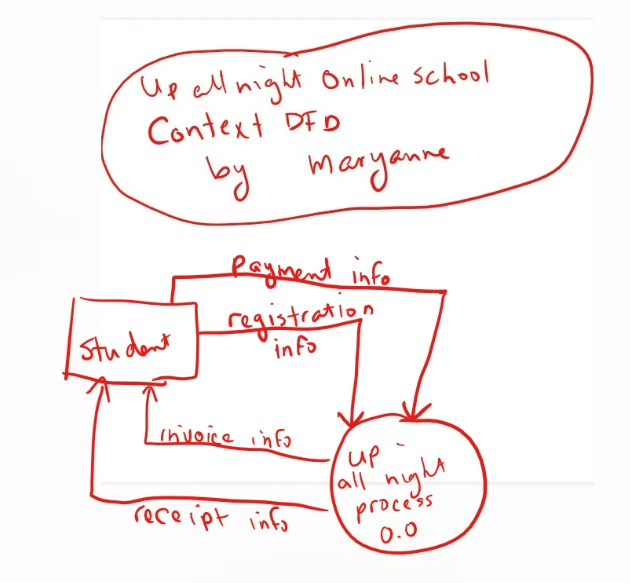 Up all night Online school
Context DFD
by Maryanne
payment info
registration
info
student
invoice info
up
all night
process
0.0
receipt info